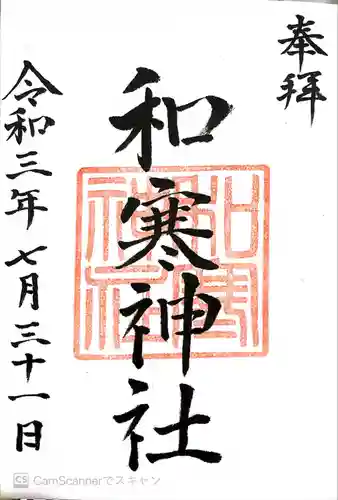 奉拝
和寒神社
令和三年七月三十一日
CS CamScannerでスキャン